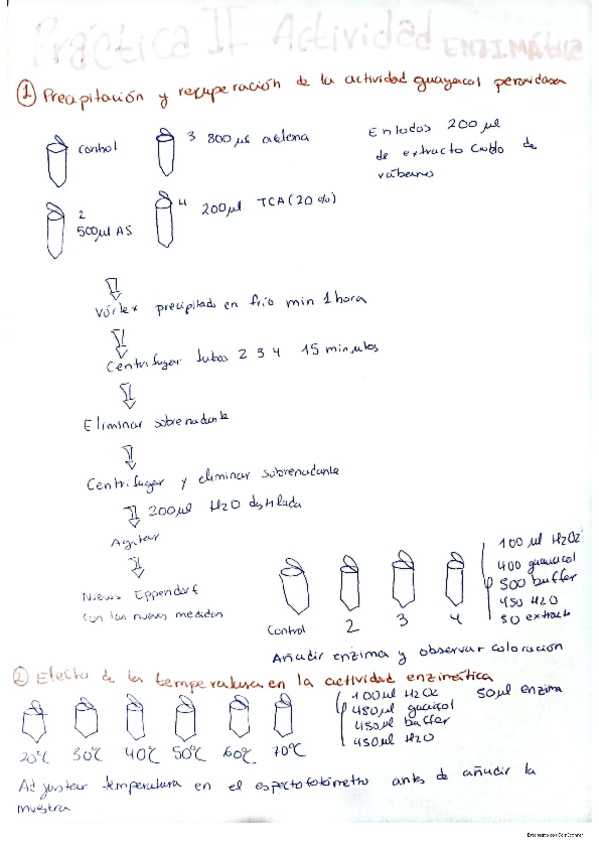 Práctica II Actividad ENZIMÁTICA
① Precipitación y recuperación de la actividad guayacol peroxidasa
control
3 800 µs acetona
En todos 200 µl
de extracto crudo de
rábano
2
500µl AS
4 200µl TCA (20%)
Vórtex precipitado en frío min 1 hora
Centrifugar tubos 2 3 4 15 minutos
Eliminar sobrenadante
Centrifugar y eliminar sobrenadante
200µl H2O destilada
Agitar
Nuevos Eppendorf
con las nuevas medidas
Control 2 3 4
100 µl H2O2
400 guaiacol
500 buffer
450 H2O
50 extracto
Añadir enzima y observar coloración
② Efecto de la temperatura en la actividad enzimática
20ºC 30ºC 40ºC 50ºC 60ºC 70ºC
100µl H2O2
450µl guaicol
450µl buffer
450µl H2O
50µl enzima
Adjustar temperatura en el espectofotómetro antes de añadir la
muestra